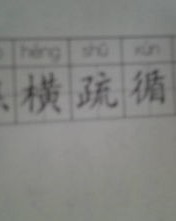 héng shū xún
横 疏 循